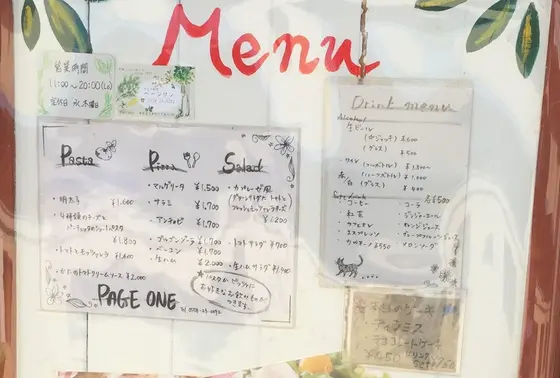 Menu
営業時間
11:00~20:00(Lo)
定休日 水、木曜日
Pasta
・明太子 ¥1,600
・4種類のチーズと
¥1,800
・トマトとモッツァレラ ¥1,600
・カニのトマトクリームソース ¥2,000
Pizza
・マルゲリータ ¥1,500
・サラミ ¥1,700
・アンチョビ ¥1,700
・ゴルゴンゾーラ ¥1,700
・ベーコン ¥1,700
・生ハム ¥2,000
Salad
・カプレーゼ風
¥1,200
・トマトサラダ ¥700
・生ハムサラダ
パスタかピッツァに
PAGE ONE
Drink
生ビール
(中ジョッキ) ¥600
(グラス) ¥500
ワイン
赤 (ハーフボトル)
白 (グラス) ¥400
各¥500
・コーヒー
・紅茶
・カフェオレ
・エスプレッソ
・カプチーノ ¥550
・コーラ
・ジンジャーエール
・オレンジジュース
・グレープフルーツジュース
・メロンソーダ
本日のケーキ
ティラミス
チョコレートケーキ
¥450